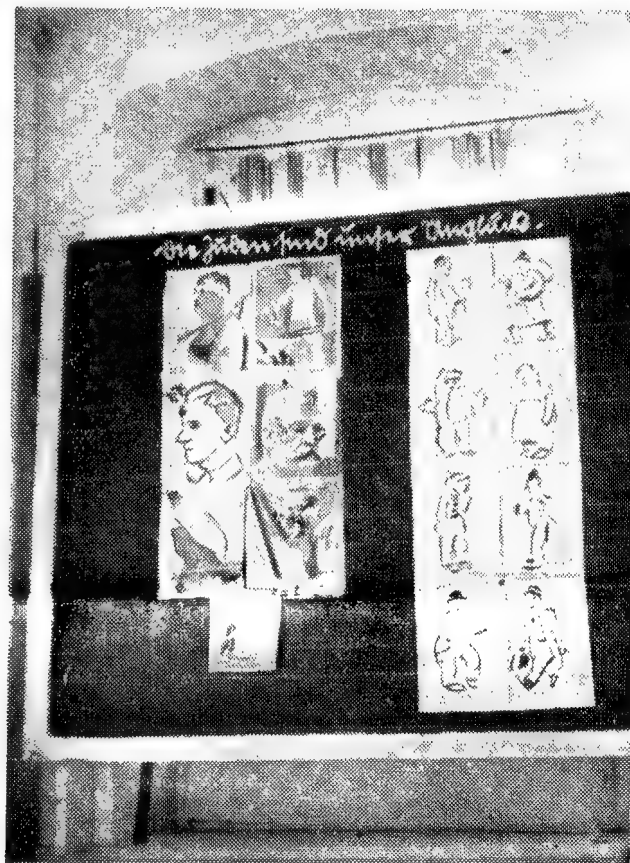 Die Juden sind unser Unglück.